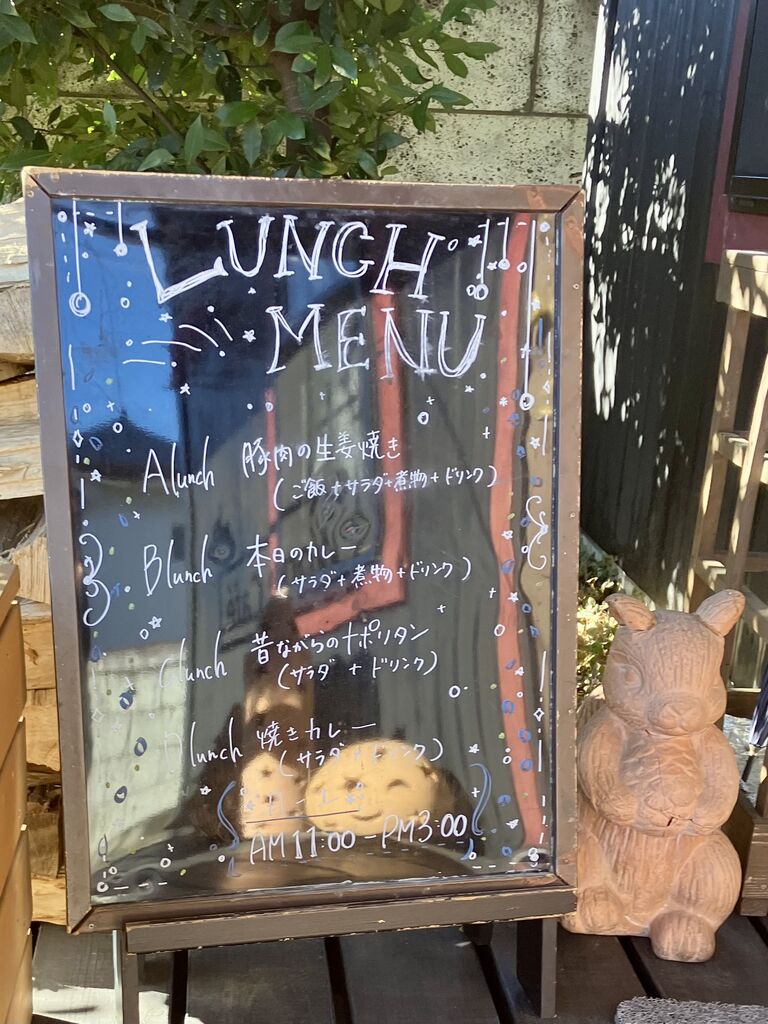 LUNCH
MENU
A lunch 豚肉の生姜焼き
(ご飯+サラダ+煮物+ドリンク)
B lunch 本日のカレー
(サラダ+煮物+ドリンク)
C lunch 昔ながらのナポリタン
(サラダ + ドリンク)
D lunch 焼きカレー
(サラダ+ドリンク)
AM 11:00 - PM 3:00